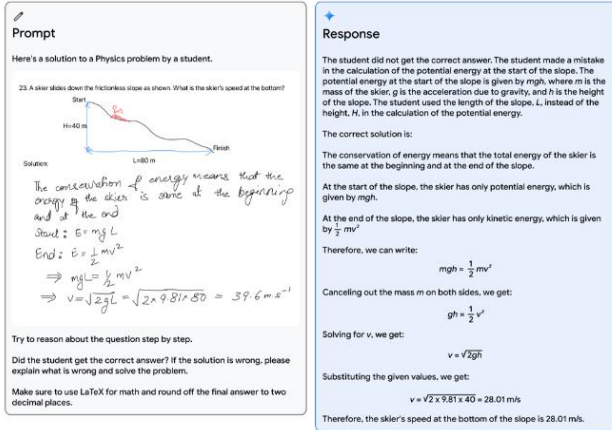 Prompt
Here's a solution to a Physics problem by a student.
23. A skier slides down the frictionless slope as shown. What is the skier's speed at the bottom?
Start
H=40 m
Finish
L=80 m
Solution:
The conservation of energy means that the
energy of the skier is same at the beginning
and at the end
Start : E = mgL
End : E = 1/2 mv²
⇒ mgL = 1/2 mv²
⇒ v = √2gL = √2×9.81×80 = 39.6 m s⁻¹
Try to reason about the question step by step.
Did the student get the correct answer? If the solution is wrong, please
explain what is wrong and solve the problem.
Make sure to use LaTeX for math and round off the final answer to two
decimal places.
Response
The student did not get the correct answer. The student made a mistake
in the calculation of the potential energy at the start of the slope. The
potential energy at the start of the slope is given by mgh, where m is the
mass of the skier, g is the acceleration due to gravity, and h is the height
of the slope. The student used the length of the slope, L, instead of the
height, H, in the calculation of the potential energy.
The correct solution is:
The conservation of energy means that the total energy of the skier is
the same at the beginning and at the end of the slope.
At the start of the slope, the skier has only potential energy, which is
given by mgh.
At the end of the slope, the skier has only kinetic energy, which is given
by 1/2 mv²
Therefore, we can write:
mgh = 1/2 mv²
Canceling out the mass m on both sides, we get:
gh = 1/2 v²
Solving for v, we get:
v = √2gh
Substituting the given values, we get:
v = √2 x 9.81 x 40 = 28.01 m/s
Therefore, the skier's speed at the bottom of the slope is 28.01 m/s.